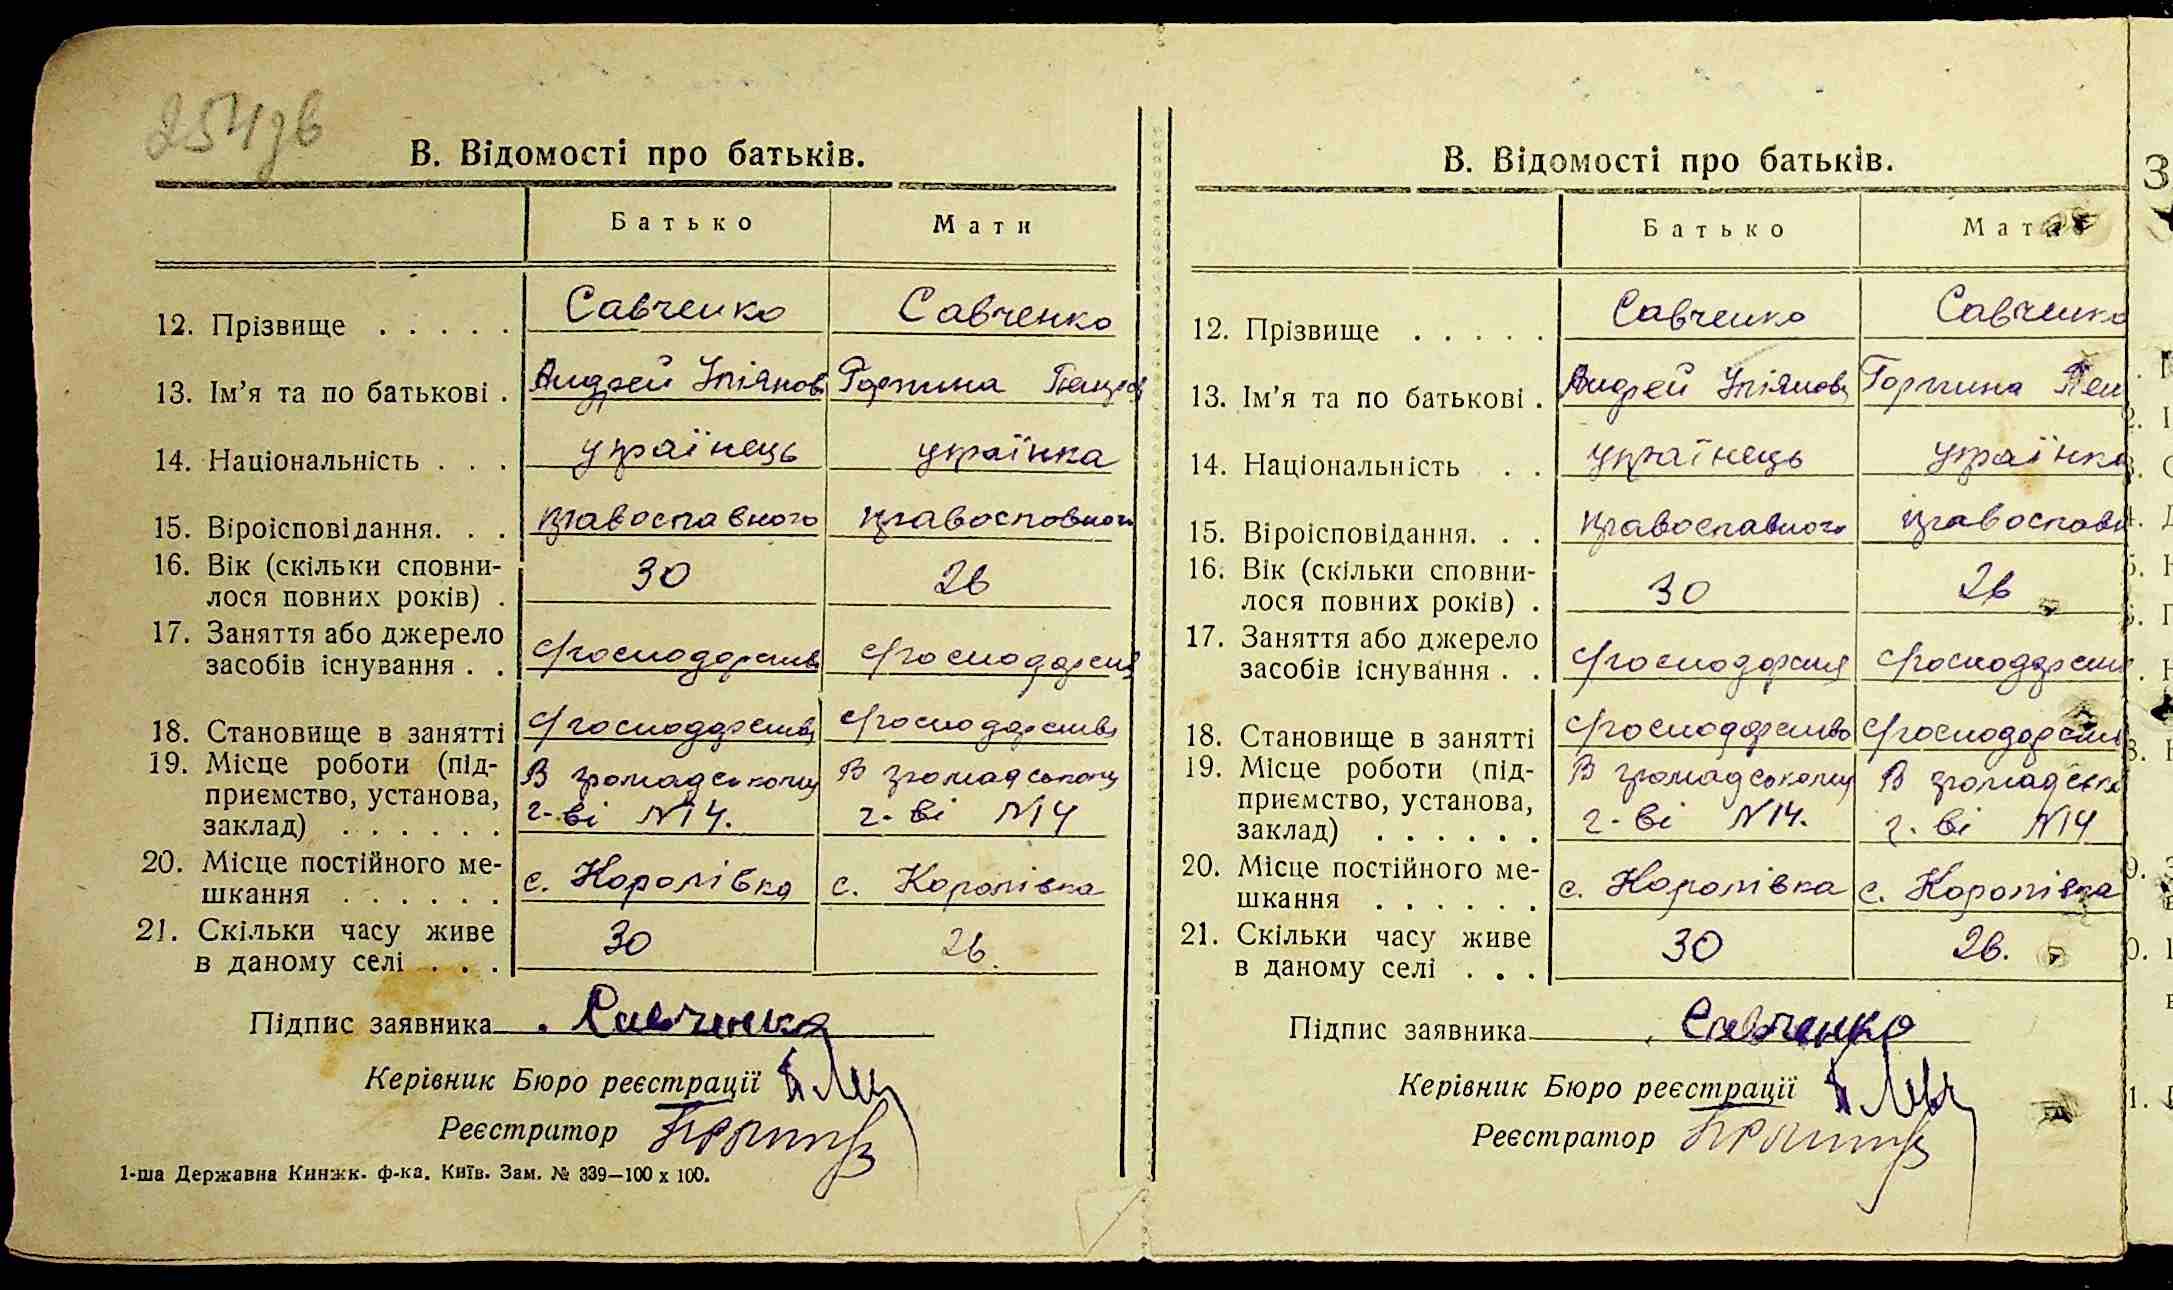 254зв
В. Відомості про батьків.
Батько Мати
12. Прізвище . . . . . Савченко Савченко
13. Ім'я та по батькові . Андрей Улянов Горпина
14. Національність . . . українець українка
15. Віроісповідання. . . православного православного
16. Вік (скільки сповни-
лося повних років) . 30 26
17. Заняття або джерело
засобів існування . . господарств господарств
18. Становище в занятті господарств господарств
19. Місце роботи (під- В громадському В громадському
приємство, установа, г-ві N14. г-ві N14
заклад) . . . . . .
20. Місце постійного ме-
шкання . . . . . . с. Королівка с. Королівка
21. Скільки часу живе
в даному селі . . . 30 26.
Підпис заявника Савченко
Керівник Бюро реєстрації
Реєстратор
1-ша Державна Книжк. ф-ка. Київ. Зам. № 339—100 х 100.
В. Відомості про батьків.
Батько Мат
12. Прізвище . . . . . Савченко Савченко
13. Ім'я та по батькові . Андрей Улянов Горпина
14. Національність . . українець українка
15. Віроісповідання. . . православного православн
16. Вік (скільки сповни-
лося повних років) . 30 26
17. Заняття або джерело
засобів існування . . господарств господарств
18. Становище в занятті господарство господарств
19. Місце роботи (під- В громадському В громадськ
приємство, установа, г-ві N14. г-ві N14
заклад) . . . . . .
20. Місце постійного ме-
шкання . . . . . . с. Королівка с. Королівка
21. Скільки часу живе
в даному селі . . . 30 26.
Підпис заявника Савченко
Керівник Бюро реєстрації
Реєстратор